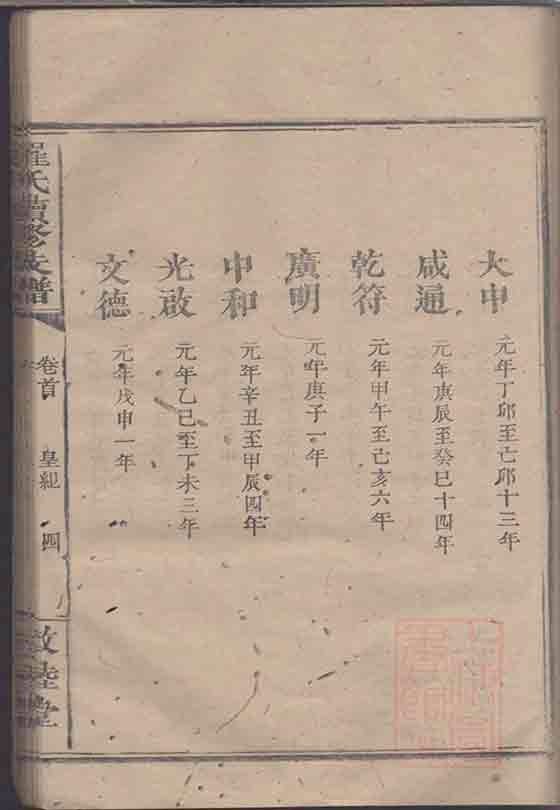 大中 元年丁邜至己邜十三年
咸通 元年庚辰至癸巳十四年
乾符 元年甲午至己亥六年
廣明 元年庚子一年
中和 元年辛丑至甲辰四年
光啟 元年乙巳至丁未三年
文德 元年戊申一年
氏續修支譜
卷首
皇紀
四
敦睦堂